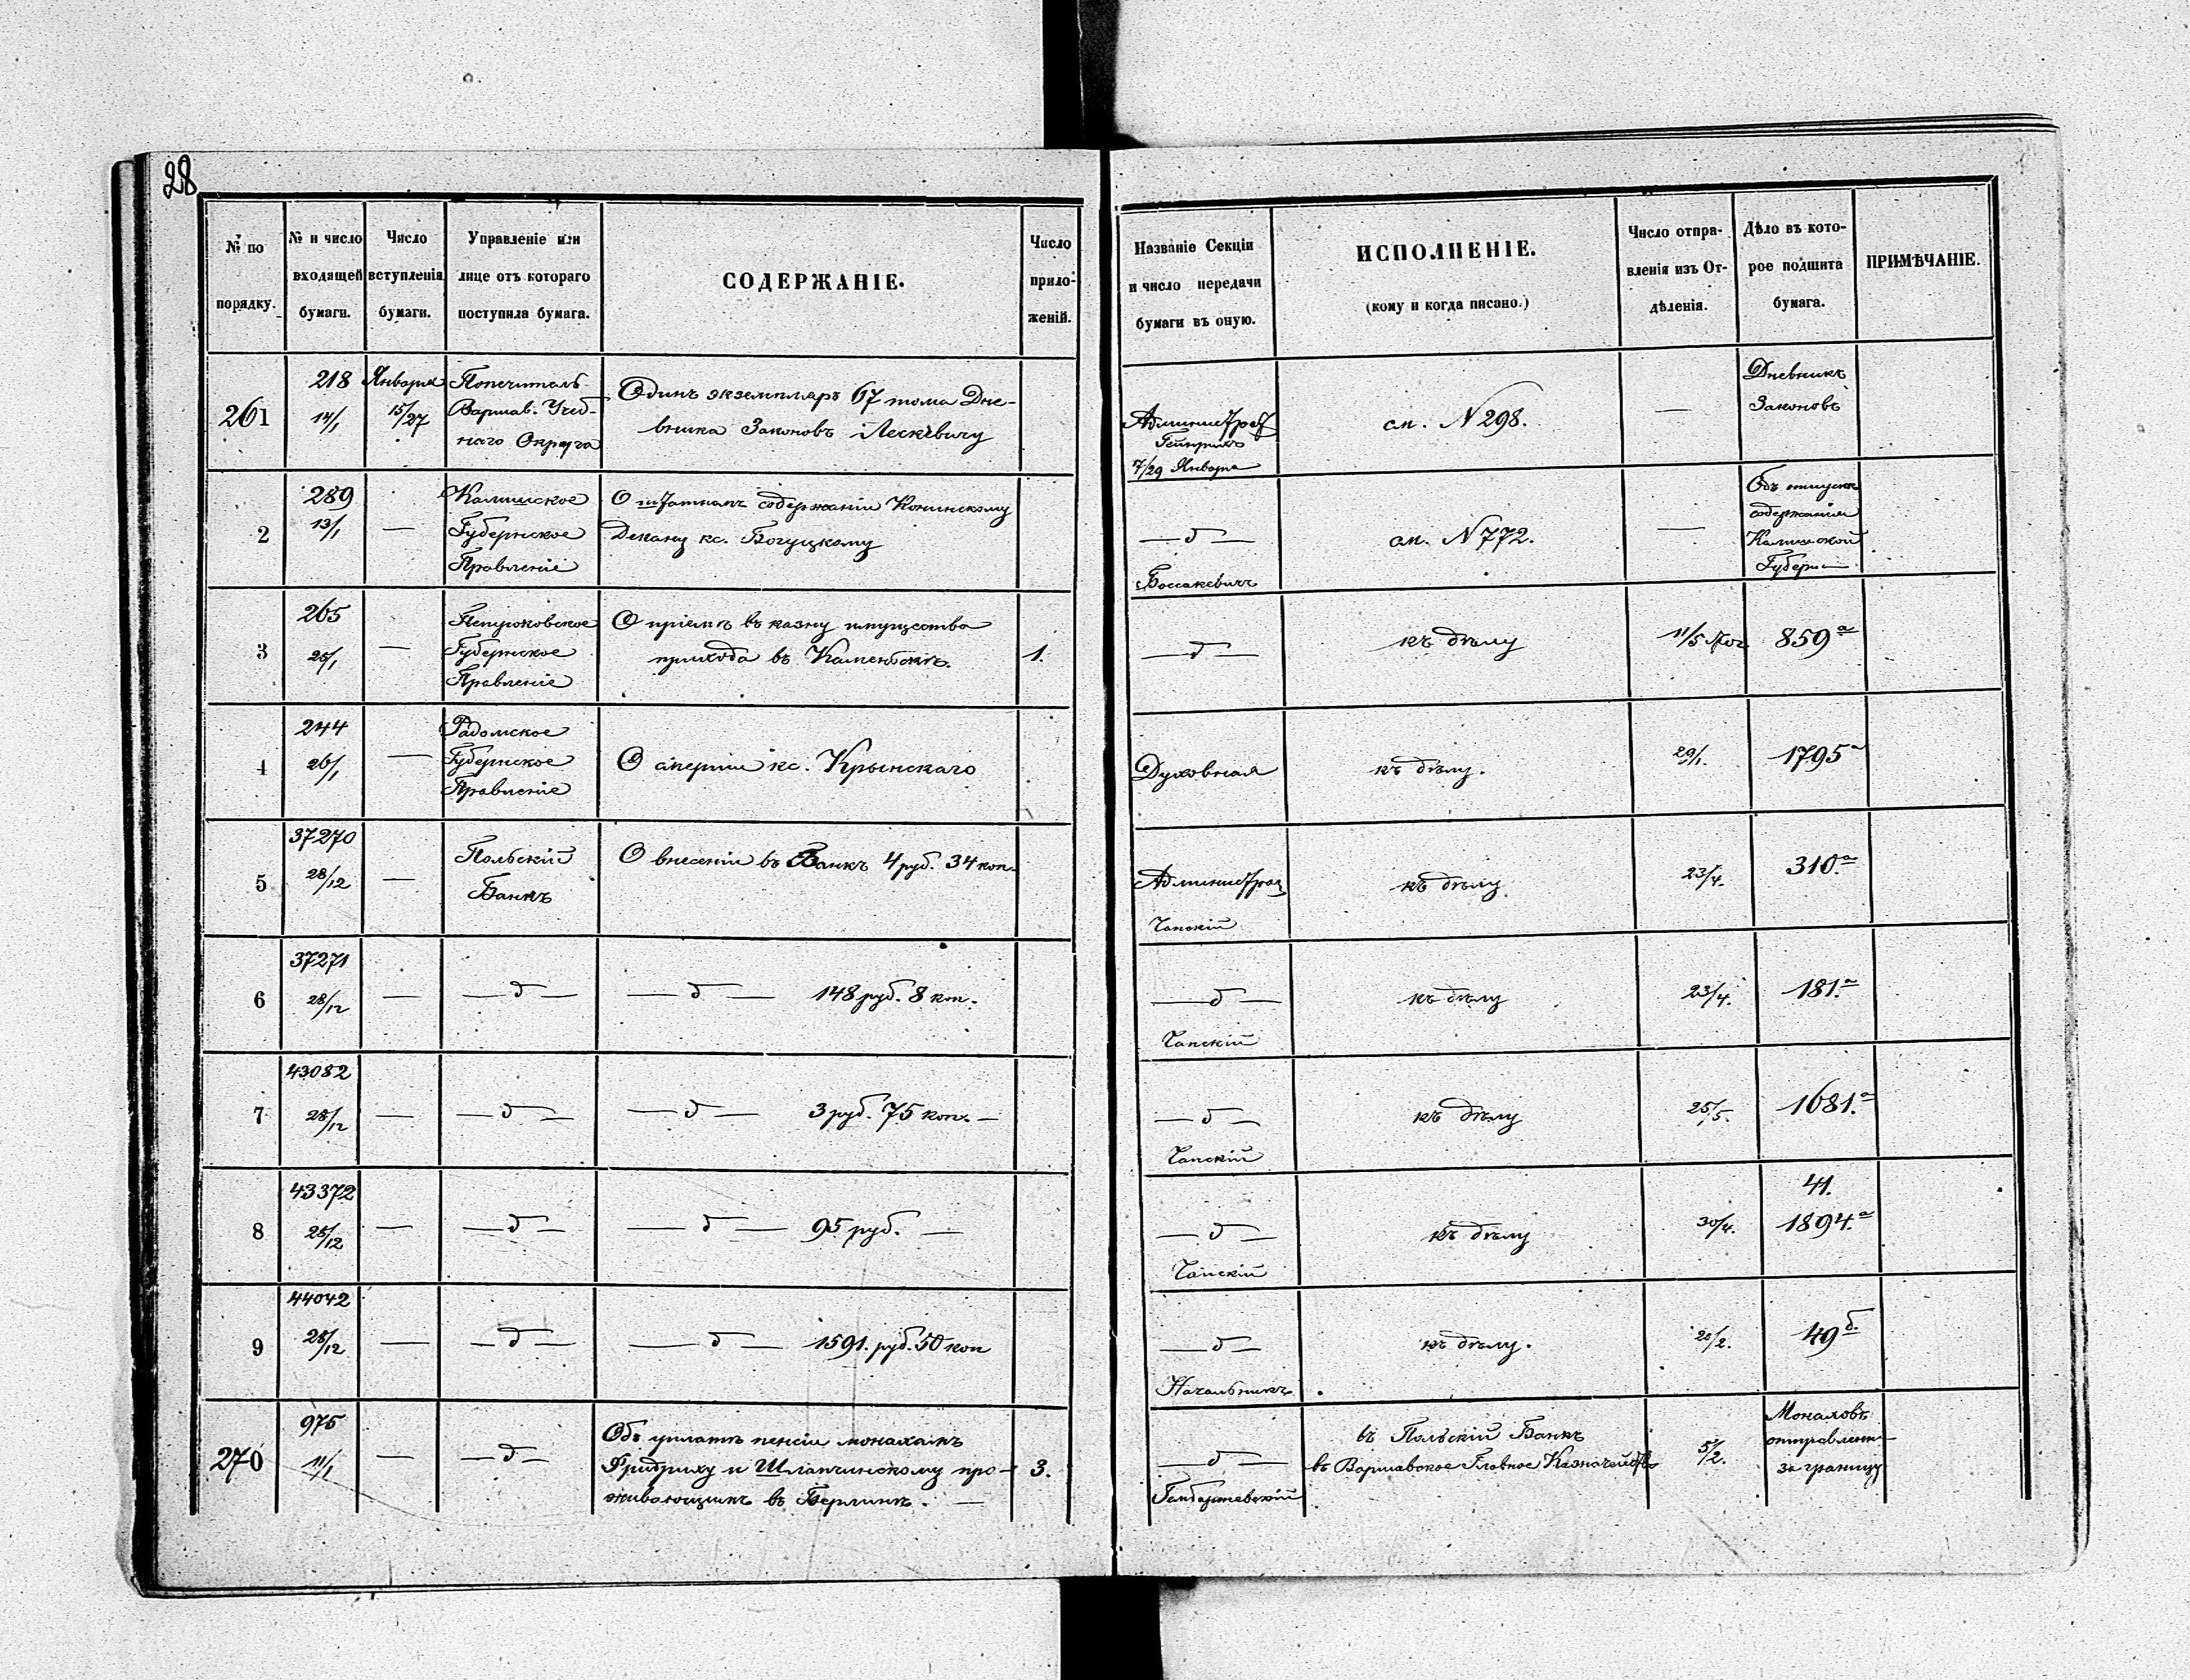 28
№ по порядку.
№ и число входящей бумаги.
Число вступленія бумаги.
Управленіе или лице отъ котораго поступила бумага.
СОДЕРЖАНІЕ.
Число приложеній.
Названіе Секціи и число передачи бумаги въ оную.
ИСПОЛНЕНІЕ.
(кому и когда писано.)
Число отправленія изъ Отдѣленія.
Дѣло въ которое подшита бумага.
ПРИМѢЧАНІЕ.
261
218
14/1
Января
15/27
Попечитель
Варшав. Учеб-
наго Округа
Одинъ экземпляръ 67 тома Дне-
вника Законовъ Лескевичу
Администрац
17/29 Января
см. N 298.
—
Дневникъ
Законовъ
2
289
13/1
—
Калишское
Губернское
Правленіе
О штатномъ содержаніи Конинскому
Декану кс. Богуцкому
— д —
Боссакевичъ
см. N 772.
—
Объ отпускѣ
содержанія
Калишской
Губерн
3
265
25/1
—
Петроковское
Губернское
Правленіе
О пріемѣ въ казну имущества
прихода въ
1.
— д —
къ дѣлу
11/5
859а
4
244
26/1
—
Радомское
Губернское
Правленіе
О смерти кс. Крынскаго
Духовная
къ дѣлу.
29/1.
1795а
5
37270
28/12
—
Польскій
Банкъ
О внесеніи въ Банкъ 4 руб. 34 коп.
Администрац
Чапскій
къ дѣлу
23/4.
310.а
6
37271
28/12
—
— д —
— д — 148 руб. 8 коп.
— д —
Чапскій
къ дѣлу
23/4.
181.а
7
43082
28/12
—
— д —
— д — 3 руб. 75 коп. —
— д —
Чапскій
къ дѣлу
25/5.
1681.а
8
43372
28/12
—
— д —
— д — 95 руб. —
— д —
Чапскій
къ дѣлу
30/4.
41.
1894.а
9
44042
28/12
—
— д —
— д — 1591. руб. 50 коп
— д —
Начальникъ
къ дѣлу.
20/2.
49б.
270
975
11/1
—
— д —
Объ уплатѣ пенсіи монахамъ
Фридриху и Шлапчинскому про-
живающимъ въ Берлинѣ. —
3.
— д —
въ Польскій Банкъ
въ Варшавское Главное Казначейство
5/2.
Монаховъ
отправлен
за границу